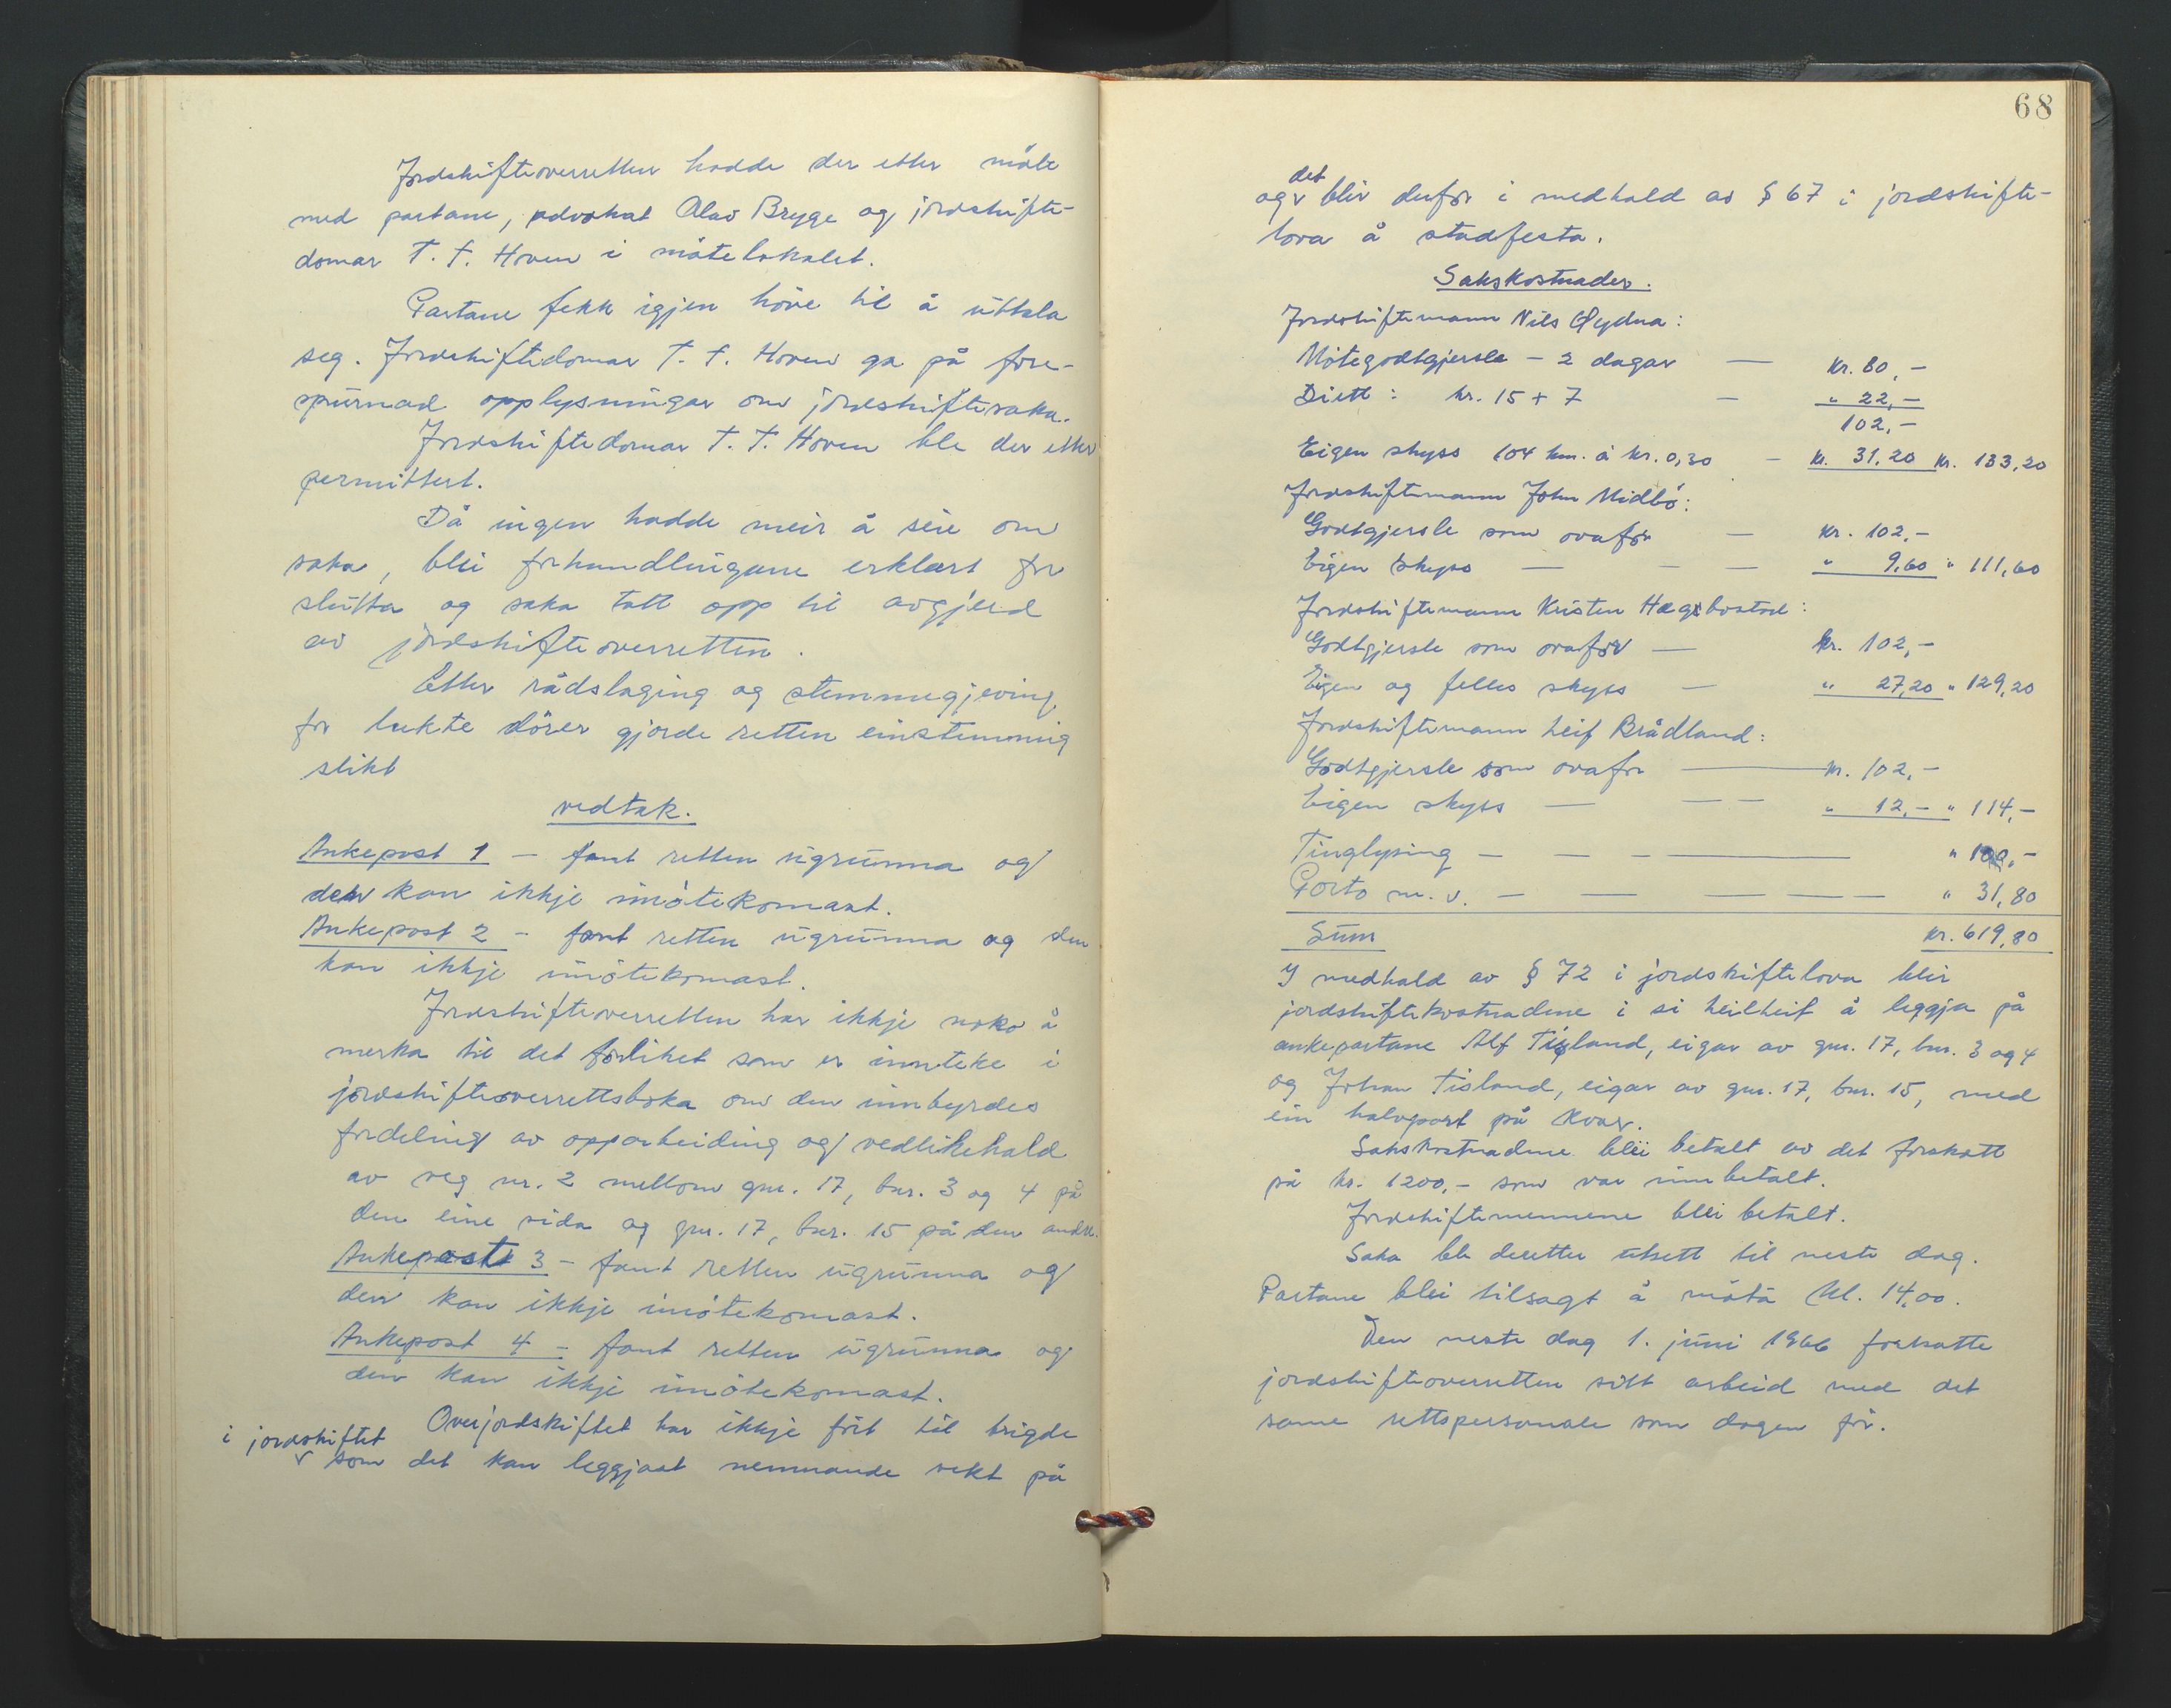 Jordskifteoverretten hadde der etter møte
med partane, advokat Olav Brygge og jordskifte-
domar T. T. Hoven i møtelokalet.
Partane fekk igjen høve til å uttala
seg. Jordskiftedomar T. T. Hoven ga på fore-
spurnad opplysningar om jordskiftesaka.
Jordskiftedomar T. T. Hoven ble der etter
permittert.
Då ingen hadde meir å seie om
saka, blei forhandlingane erklært for
slutta og saka tatt opp til avgjerd
av jordskifteoverretten.
Etter rådslaging og stemmegjeving
for lukte dører gjorde retten einstemmig
slikt
vedtak.
Ankepost 1 - fant retten ugrunna og
den kan ikkje imøtekomast.
Ankepost 2 - fant retten ugrunna og den
kan ikkje imøtekomast.
Jordskifteoverretten har ikkje noko å
merka til det forliket som er innteke i
jordskifteoverrettsboka om den innbyrdes
fordeling av opparbeiding og vedlikehald
av veg nr. 2 mellom gnr. 17, bnr. 3 og 4 på
den eine sida og gnr. 17, bnr. 15 på den andre.
Ankepost 3 - fant retten ugrunna og
den kan ikkje imøtekomast.
Ankepost 4 - fant retten ugrunna og
den kan ikkje imøtekomast.
Overjordskiftet har ikkje ført til brigde
i jordskiftet
som det kan leggjast nemnande vekt på
68
det
og blir derfor i medhald av § 67 i jordskifte-
lova å stadfesta.
Sakskostnader.
Jordskiftemann Nils Øydna:
Møtegodtgjersle - 2 dagar — kr. 80,-
Diett: kr. 15 + 7 - " 22,-
102,-
Eigen skyss 104 km. à kr. 0,30 - kr. 31,20 kr. 133,20
Jordskiftemann John Midbø:
Godtgjersle som ovafor — kr. 102,-
Eigen skyss — — — " 9,60 " 111,60
Jordskiftemann Kristen Hægebostad:
Godtgjersle som ovafor — kr. 102,-
Eigen og felles skyss — " 27,20 " 129,20
Jordskiftemann Leif Brådland:
Godtgjersle som ovafor — kr. 102,-
Eigen skyss — — — " 12,- " 114,-
Tinglysing — — — — " 100,-
Porto m. v. — — — — " 31,80
Sum kr. 619,80
I medhald av § 72 i jordskiftelova blir
jordskiftekostnadene i si heilheit å leggja på
ankepartane Alf Tisland, eigar av gnr. 17, bnr. 3 og 4
og Johan Tisland, eigar av gnr. 17, bnr. 15, med
ein halvpart på kvar.
Sakskostnadene blei betalt av det forskott
på kr. 1200,- som var innbetalt.
Jordskiftemennene blei betalt.
Saka ble deretter utsett til neste dag.
Partane blei tilsagt å møta kl. 14,00.
Den neste dag 1. juni 1966 fortsatte
jordskifteoverretten sitt arbeid med det
same rettspersonale som dagen før.